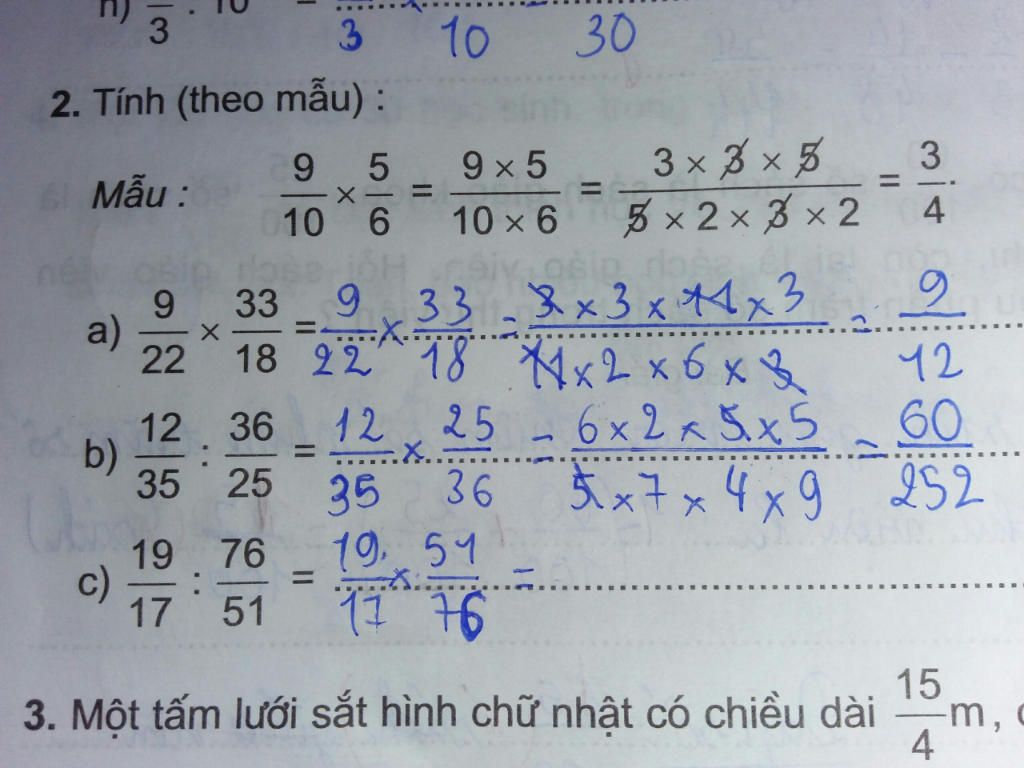 h) /3 : 10 = /3 × /10 = /30
2. Tính (theo mẫu) :
Mẫu : 9/10 × 5/6 = 9 × 5/10 × 6 = 3 × 3 × 5/5 × 2 × 3 × 2 = 3/4.
a) 9/22 × 33/18 = 9/22 × 33/18 = 3 × 3 × 11 × 3/11 × 2 × 6 × 3 = 9/12
b) 12/35 : 36/25 = 12/35 × 25/36 = 6 × 2 × 5 × 5/5 × 7 × 4 × 9 = 60/252
c) 19/17 : 76/51 = 19/17 × 51/76 =
3. Một tấm lưới sắt hình chữ nhật có chiều dài 15/4 m ,